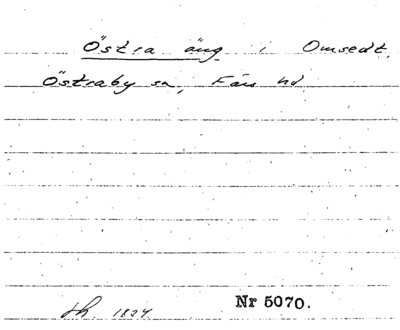 Östra äng i Onsedt.
Östraby sn, Färs hd
Nr 5070.
Jh 1824